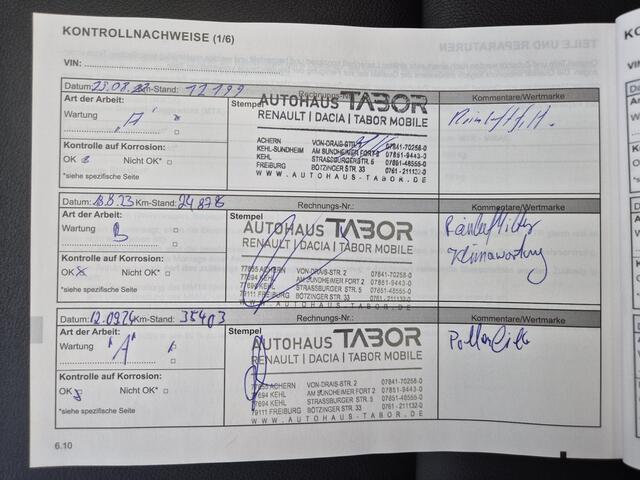 KONTROLLNACHWEISE (1/6)
VIN:
Datum: 23.08.22 Km-Stand: 12199 Rechnungs-Nr.: Kommentare/Wertmarke
Art der Arbeit: Stempel AUTOHAUS TABOR
Wartung "A" RENAULT | DACIA | TABOR MOBILE
Kontrolle auf Korrosion:
ACHERN VON-DRAIS-STR. 07841-70258-0
KEHL-SUNDHEIM AM SUNDHEIMER FORT 07851-9443-0
KEHL STRASSBURGER STR. 5 07851-48555-0
FREIBURG BÖTZINGER STR. 33 0761-
OK Nicht OK*
WWW.AUTOHAUS-TABOR.DE
*siehe spezifische Seite
Datum: 18.8.23 Km-Stand: 24878 Rechnungs-Nr.: Kommentare/Wertmarke
Art der Arbeit: Stempel AUTOHAUS TABOR
Wartung B RENAULT | DACIA | TABOR MOBILE
Klimawartung
Kontrolle auf Korrosion:
77855 ACHERN VON-DRAIS-STR. 2 07841-70258-0
77694 KEHL AM SUNDHEIMER FORT 2 07851-9443-0
77694 KEHL STRASSBURGER STR. 5 07851-48555-0
79111 FREIBURG BÖTZINGER STR. 33 0761-211132-0
OK Nicht OK*
AUTOHAUS-TABOR.DE
*siehe spezifische Seite
Datum: 12.09.24 Km-Stand: 35403 Rechnungs-Nr.: Kommentare/Wertmarke
Art der Arbeit: Stempel AUTOHAUS TABOR
Wartung "A" RENAULT | DACIA | TABOR MOBILE
Kontrolle auf Korrosion:
77855 ACHERN VON-DRAIS-STR. 2 07841-70258-0
77694 KEHL AM SUNDHEIMER FORT 2 07851-9443-0
77694 KEHL STRASSBURGER STR. 5 07851-48555-0
79111 FREIBURG BÖTZINGER STR. 33 0761-211132-0
OK Nicht OK*
WWW.AUTOHAUS-TABOR.DE
*siehe spezifische Seite
6.10